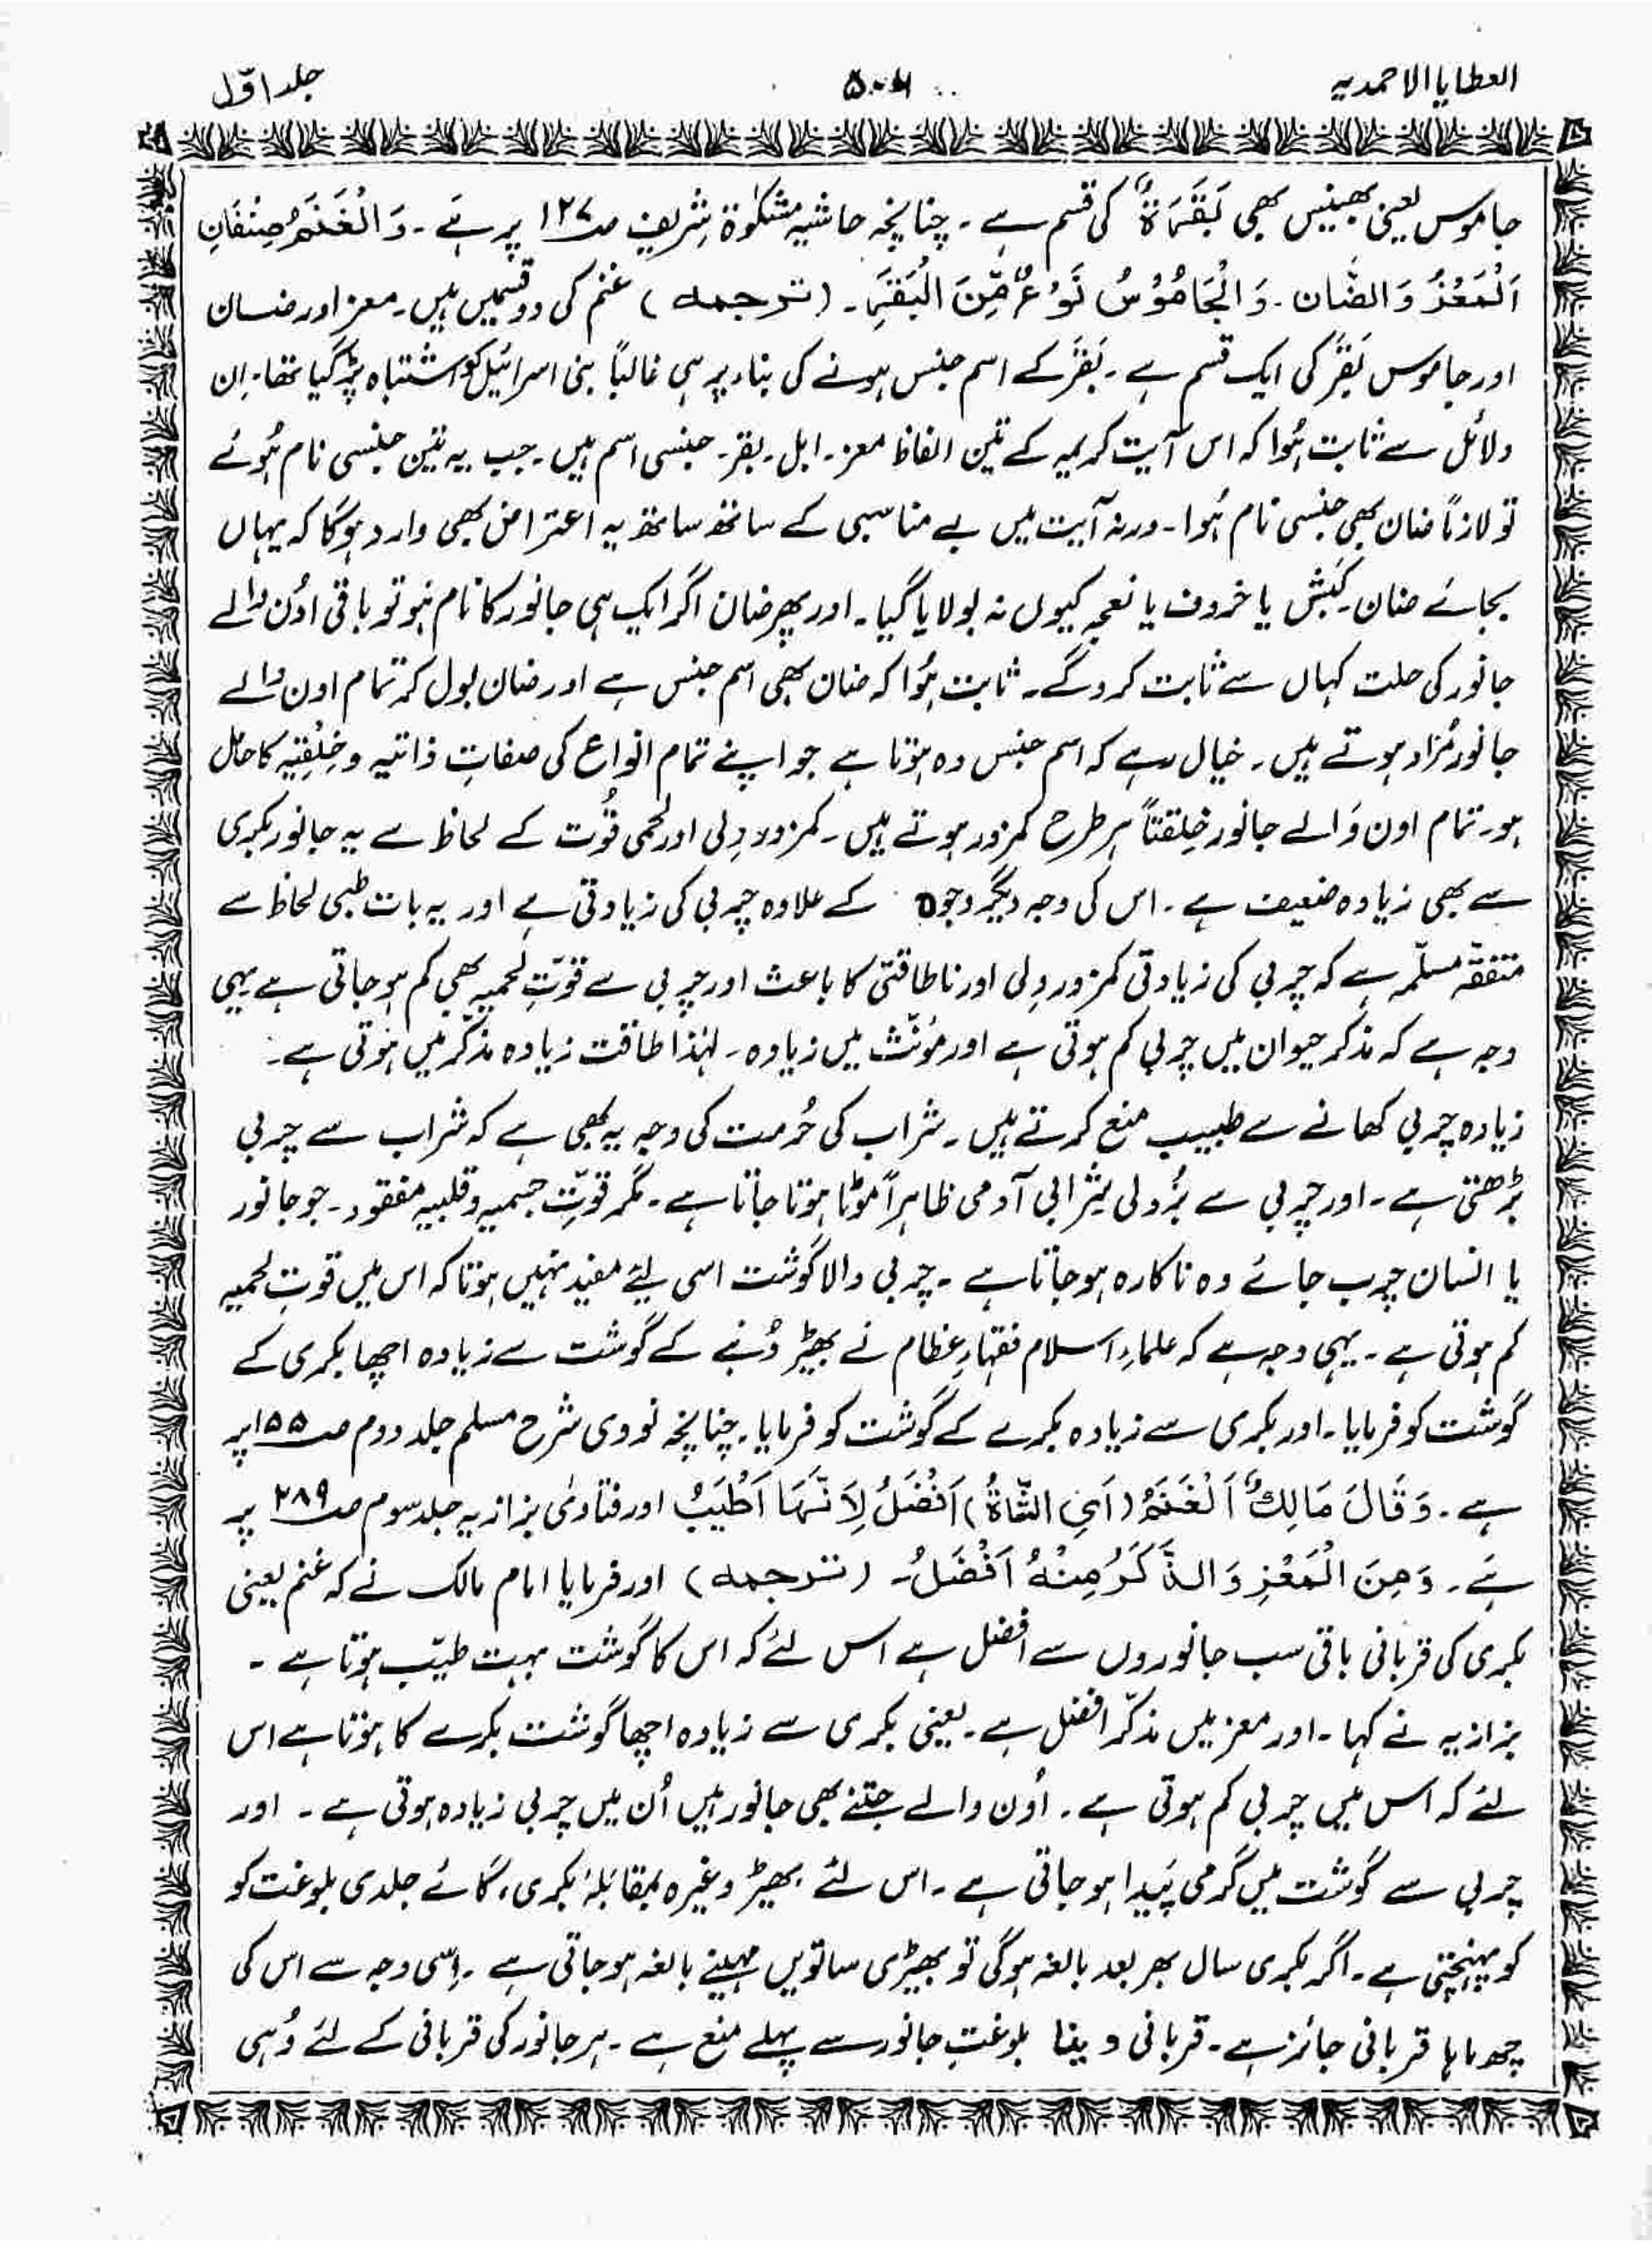 العطایا الاحمدیہ
جلد اوّل
جاموس یعنی بھینس بھی بَقَرَۃٌ کی قسم ہے ۔ چنانچہ حاشیہ مشکوٰۃ شریف صـ۱۲۷ پر ہَے ۔ وَالْغَنَمُ صِنْفَانِ
اَلْمَعْزُ وَالضَّان ۔ وَالْجَامُوْسُ نَوْعٌ مِّنَ الْبَقَرِ ۔ (ترجمہ) غنم کی دو قسمیں ہیں ۔ معز اور ضان
اور جاموس بَقَرْ کی ایک قسم ہے ۔ بَقَرْ کے اسم جنس ہونے کی بناء پر ہی غالباً بنی اسرائیل کو اشتباہ پڑ گیا تھا ۔ اِن
دلائل سے ثابت ہُوا کہ اس آیت کریمہ کے تین الفاظ معز ۔ ابل ۔ بقر ۔ جنسی اسم ہیں ۔ جب یہ تین جنسی نام ہُوئے
تو لازماً ضان بھی جنسی نام ہُوا ۔ ورنہ آیت میں بے مناسبی کے ساتھ ساتھ یہ اعتراض بھی وارد ہو گا کہ یہاں
بجائے ضان ۔ کَبَش یا خروف یا نعجہ کیوں نہ بولا یا گیا ۔ اور پھر ضان اگر ایک ہی جانور کا نام ہو تو باقی اوُن والے
جانور کی حلت کہاں سے ثابت کرو گے ۔ ثابت ہُوا کہ ضان بھی اسم جنس ہے اور ضان بول کر تمام اون والے
جانور مُراد ہوتے ہیں ۔ خیال رہے کہ اسم جنس وہ ہوتا ہے جو اپنے تمام انواع کی صفاتِ ذاتیہ و خِلْقِیہ کا حامل
ہو ۔ تمام اون وَالے جانور خِلقتاً ہر طرح کمزور ہوتے ہیں ۔ کمزور دِلی اور لحمی قُوّت کے لحاظ سے یہ جانور بکری
سے بھی زیادہ ضعیف ہے ۔ اس کی وجہ دیگر وجوہ کے علاوہ چربی کی زیادتی ہے اور یہ بات طبی لحاظ سے
متفقہ مسلّمہ ہے کہ چربی کی زیادتی کمزور دِلی اور ناطاقتی کا باعث اور چربی سے قوّتِ لحمیہ بھی کم ہو جاتی ہے یہی
وجہ ہے کہ مذکر حیوان میں چربی کم ہوتی ہے اور مؤنّث میں زیادہ ۔ لہٰذا طاقت زیادہ مذکّر میں ہوتی ہے ۔
زیادہ چربی کھانے سے طبیب منع کرتے ہیں ۔ شراب کی حُرمت کی وجہ یہ بھی ہے کہ شراب سے چربی
بڑھتی ہے ۔ اور چربی سے بُزدلی شرابی آدمی ظاہراً موٹا ہوتا جاتا ہے ۔ مگر قوّتِ جسمیہ و قلبیہ مفقود ۔ جو جانور
یا انسان چرب جائے وہ ناکارہ ہو جاتا ہے ۔ چربی والا گوشت اسی لئے مفید نہیں ہوتا کہ اس میں قوتِ لحمیہ
کم ہوتی ہے ۔ یہی وجہ ہے کہ علماءِ اسلام فقہاءِ عظام نے بھیڑ دُنبے کے گوشت سے زیادہ اچھا بکری کے
گوشت کو فرمایا ۔ اور بکری سے زیادہ بکرے کے گوشت کو فرمایا ۔ چنانچہ نووی شرح مسلم جلد دوم صـ۱۵۵ پر
ہے ۔ وَقَالَ مَالِكٌ اَلْغَنَمُ (اَیِ الشَّاۃُ) اَفْضَلُ لِاَنَّهَا اَطْيَبُ اور فتاویٰ بزازیہ جلد سوم صـ۲۸۹ پر
ہَے ۔ وَمِنَ الْمَعْزِ وَالذَّكَرُ مِنْهُ اَفْضَلُ ۔ (ترجمہ) اور فرمایا امام مالک نے کہ غنم یعنی
بکری کی قربانی باقی سب جانوروں سے افضل ہے اس لئے کہ اس کا گوشت بہت طیّب ہوتا ہے ۔
بزازیہ نے کہا ۔ اور معز میں مذکّر افضل ہے ۔ یعنی بکری سے زیادہ اچھا گوشت بکرے کا ہوتا ہے اس
لئے کہ اس میں چربی کم ہوتی ہے ۔ اُون والے جتنے بھی جانور ہیں اُن میں چربی زیادہ ہوتی ہے ۔ اور
چربی سے گوشت میں گرمی پَیدا ہو جاتی ہے ۔ اس لئے بھیڑ وغیرہ بمقابلۂ بکری، گائے جلدی بلوغت کو
کو پہنچتی ہے ۔ اگر بکری سال بھر بعد بالغہ ہو گی تو بھیڑی ساتویں مہینے بالغہ ہو جاتی ہے ۔ اِسی وجہ سے اس کی
چھ ماہا قربانی جائز ہے ۔ قربانی دینا بلوغتِ جانور سے پہلے منع ہے ۔ ہر جانور کی قربانی کے لئے وُہی